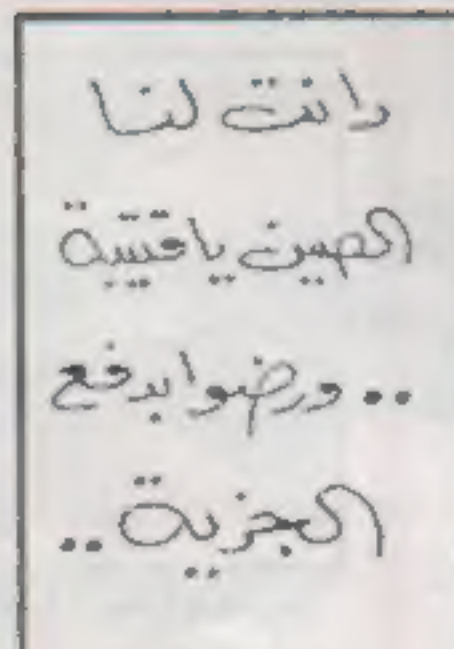 دانت لنا
الصين ياقتيبة
.. ورضوا بدفع
الجزية ..